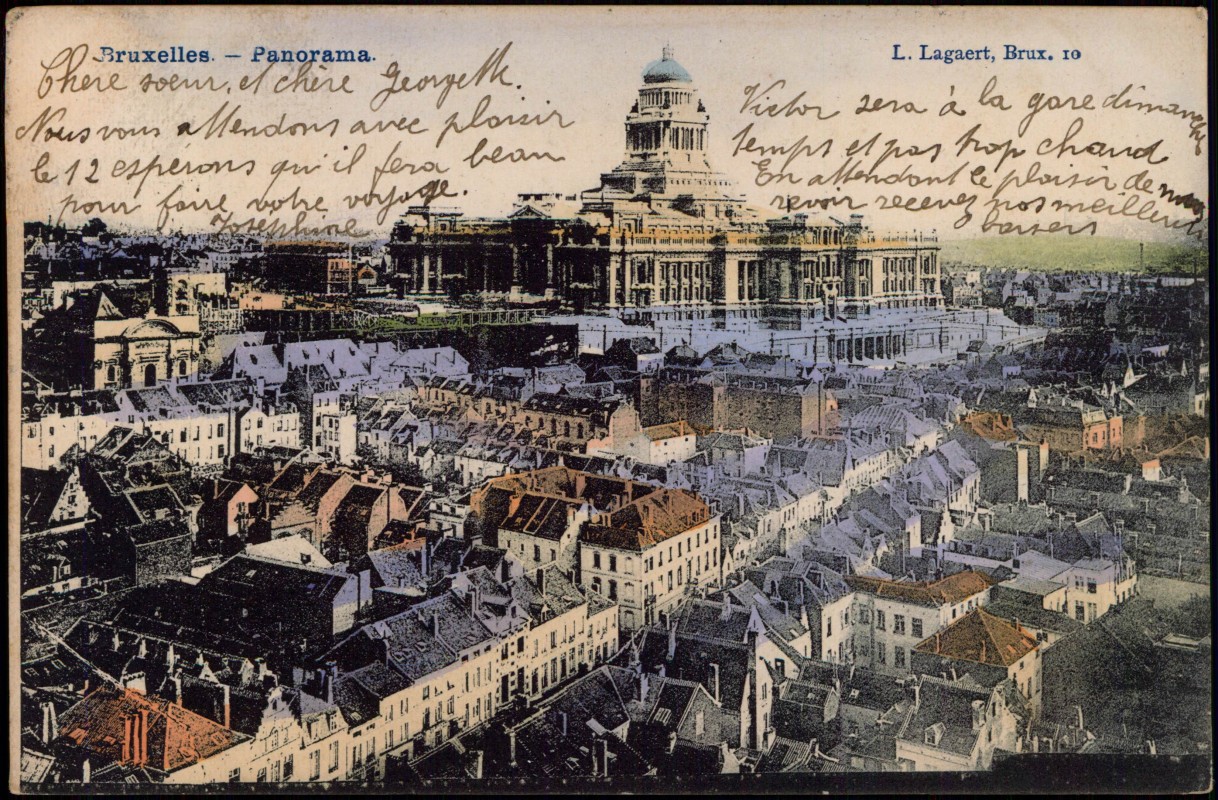 Bruxelles. — Panorama.
L. Lagaert, Brux. 10
Chère soeur, et chère Georgette.
Nous vous attendons avec plaisir
le 12 espérons qu'il fera beau
pour faire votre voyage.
Joséphine
Victor sera à la gare dimanche
temps et pas trop chaud
En attendant le plaisir de vous
revoir recevez nos meilleurs
baisers